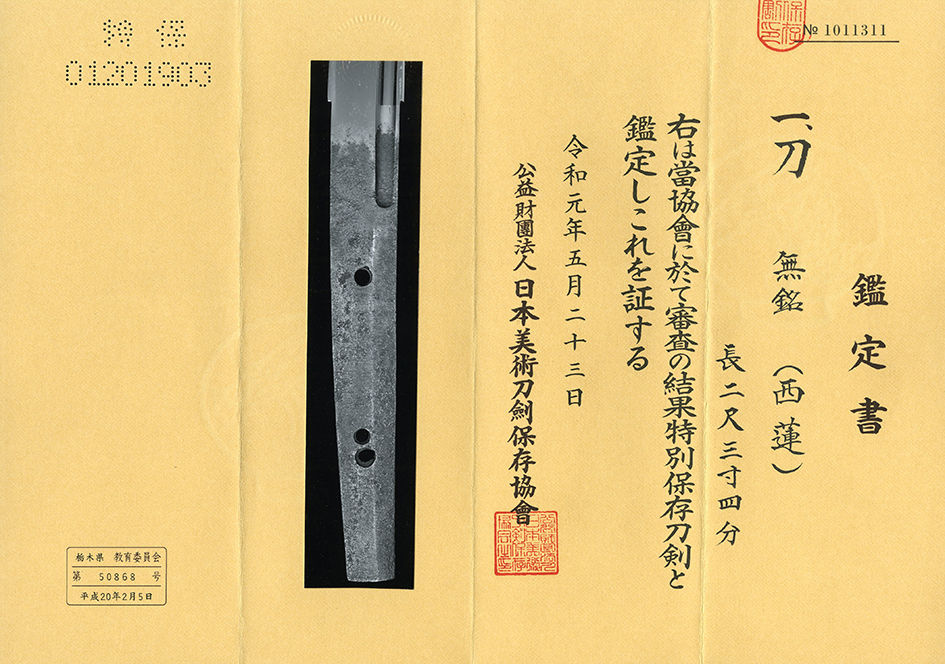 № 1011311
鑑定書
一、刀 無銘 (西蓮)
長二尺三寸四分
右は當協會に於て審査の結果特別保存刀剣と
鑑定しこれを証する
令和元年五月二十三日
公益財團法人 日本美術刀劍保存協會
特保
01201903
栃木県 教育委員会
第 50868 号
平成20年2月5日